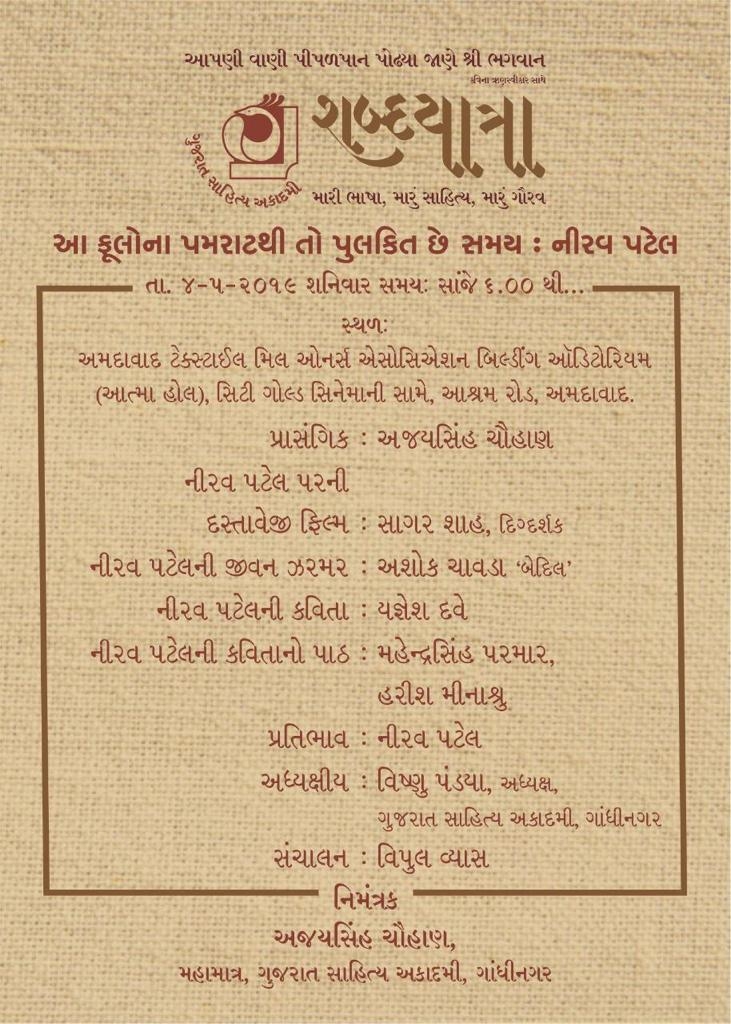 આપણી વાણી પીપળપાન પોઢ્યા જાણે શ્રી ભગવાન
કવિના ઋણસ્વીકાર સાથે
શબ્દયાત્રા
ગુજરાત સાહિત્ય અકાદમી
મારી ભાષા, મારું સાહિત્ય, મારું ગૌરવ
આ ફૂલોના પમરાટથી તો પુલકિત છે સમય : નીરવ પટેલ
તા. ૪-૫-૨૦૧૯ શનિવાર સમય: સાંજે ૬.૦૦ થી...
સ્થળ:
અમદાવાદ ટેક્સ્ટાઈલ મિલ ઓનર્સ એસોસિએશન બિલ્ડીંગ ઑડિટોરિયમ
(આત્મા હોલ), સિટી ગોલ્ડ સિનેમાની સામે, આશ્રમ રોડ, અમદાવાદ.
પ્રાસંગિક : અજયસિંહ ચૌહાણ
નીરવ પટેલ પરની
દસ્તાવેજી ફિલ્મ : સાગર શાહ, દિગ્દર્શક
નીરવ પટેલની જીવન ઝરમર : અશોક ચાવડા ‘બેદિલ’
નીરવ પટેલની કવિતા : યજ્ઞેશ દવે
નીરવ પટેલની કવિતાનો પાઠ : મહેન્દ્રસિંહ પરમાર,
હરીશ મીનાશ્રુ
પ્રતિભાવ : નીરવ પટેલ
અધ્યક્ષીય : વિષ્ણુ પંડયા, અધ્યક્ષ,
ગુજરાત સાહિત્ય અકાદમી, ગાંધીનગર
સંચાલન : વિપુલ વ્યાસ
નિમંત્રક
અજયસિંહ ચૌહાણ,
મહામાત્ર, ગુજરાત સાહિત્ય અકાદમી, ગાંધીનગર